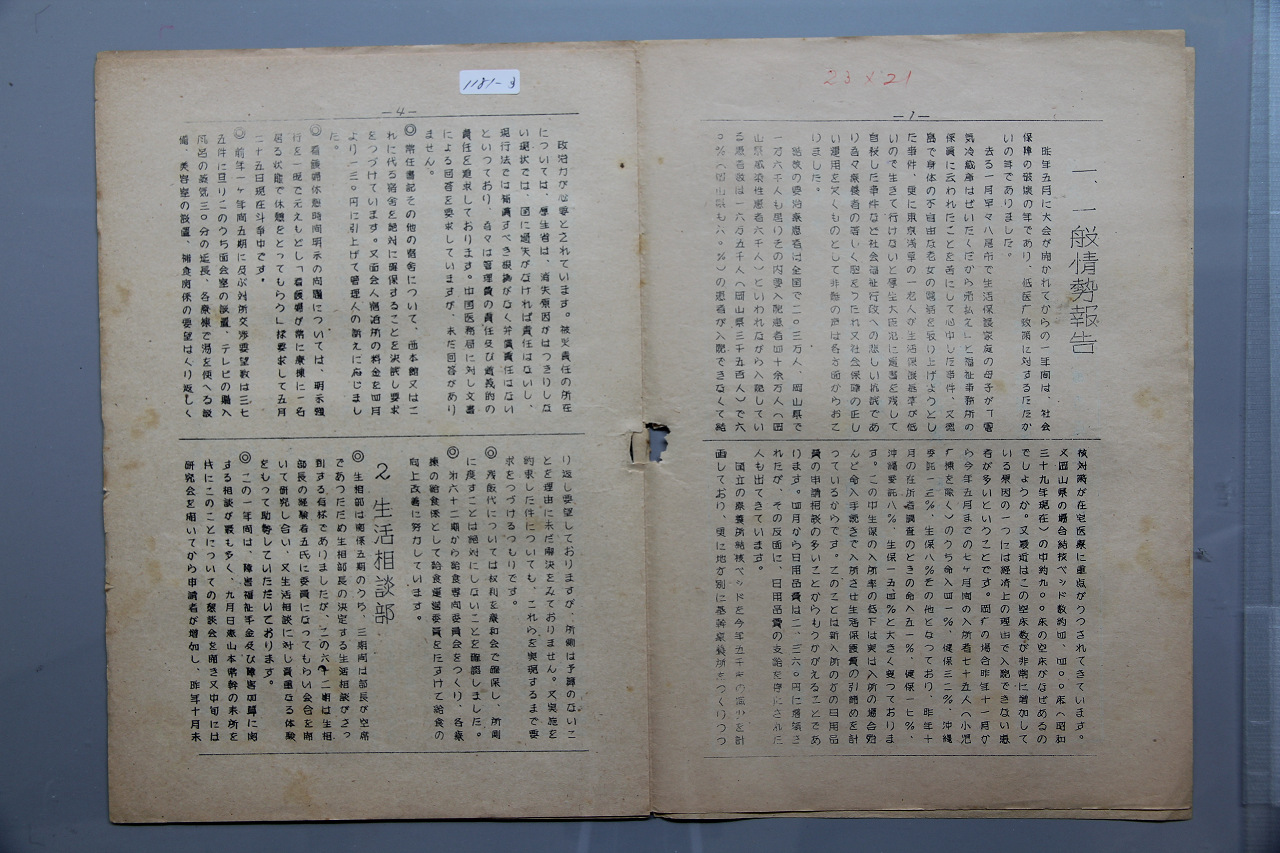 23×21
—1—
一、一般情勢報告
昨年五月に大会が開かれてからの一年間は、社会
保障の破壊の年であり、低医療政策に対するたたか
いの年でありました。
去る一月早々八尾市で生活保護家庭の母子が「電
気冷蔵庫はぜいたくだから売払え」と福祉事務所の
係員に云われたことを苦にして心中した事件、又徳
島で身体の不自由な老女の電話を取り上げようとし
た事件、更に東京浅草の一老人が生活保護基準が低
いので生きて行けないと厚生大臣宛に遺書を残して
自殺した事件など社会福祉行政への悲しい抗議であ
り吾々療養者の著しく怒をつたれ又社会保障の正し
い運用を欠くものとして非難の声は各方面からおこ
りました。
結核の要治療患者は全国で二〇三万人、岡山県で
一万六千人も居りその内要入院患者四十余万人(岡
山県感染性患者六千人)といわれながら入院してい
る患者数は一六万五千人(岡山県三千五百人)で六
〇%(岡山県も六〇%)の患者が入院できなくて結
核対策が在宅医療に重点がうつされてきています。
又岡山県の場合結核ベッド数約四、四〇〇床(昭和
三十九年現在)の中約九〇〇床の空床がなぜあるの
でしょうか。又最近はこの空床数が非常に増加して
いる原因の一つには経済上の理由で入院できない患
者が多いということです。岡療の場合昨年十一月か
ら今年五月までの七ヶ月間の入所者七十五人(小児
病棟を除く)のうち命入四一%、健保三二%、沖縄
委託一三%、生保八%その他となっており、昨年十
月の在所者調査のときの命入五一%、健保一七%、
沖縄委託八%、生保一五四%と大きく変っておりま
す。この中生保の入所率の低下は実は入所の場合殆
んど命入手続きで入所させ生活保護費の引締めを計
っているからです。このことは新入所の方の日用品
費の申請相談の多いことからもうかがえることであ
ります。四月から日用品費は二、三六〇円に増額さ
れたが、その反面に、日用品費の支給を停止された
人も出てきています。
国立の療養所結核ベッドを今年五千床の減少を計
画しており、更に地方別に基幹療養所をつくりつつ
1181-3
—4—
政治力が必要とされています。被災責任の所在
については、厚生省は、消失原因がはっきりしな
い現状では、国に過失がなければ責任はないし、
現行法では補償すべき根拠がなく弁償責任はない
といっており、吾々は管理責の責任及び道義的の
責任を追求しております。中国医務局に対し文書
による回答を要求していますが、未だ回答があり
ません。
◎ 常任書記その他の宿舎について、西本館又はこ
れに代る宿舎を絶対に確保することを決議し要求
をつづけています。又面会人宿泊所の料金を四月
より一三〇円に引上げて管理人の訴えに応じまし
た。
◎ 看護婦休憩時間明示の問題については、明示強
行を一応でえんもどし「看護婦が常に療棟に一名
居る状態で休憩をとってもらう」様要求して五月
二十五日現在斗争中です。
◎ 前年一ヶ年間五期に及ぶ対所交渉要望数は三七
五件に亘りこのうち面会室の設置、テレビの購入
風呂の蒸気三〇分の延長、各療棟で湯を使へる設
備、美容室の設置、補食関係の要望はくり返しく
り返し要望しておりますが、所側は予算のないこ
とを理由に未だ解決をみておりません。又実施を
約束した件についても、これらを実現するまで要
求をつづけるつもりです。
◎ 残飯代については权利を療和会で確保し、所側
に渡すことは絶対にしないことを確認しました。
◎ 第六十二期から給食専向委員会をつくり、各療
棟の給食係として給食運営委員をたすけて給食の
向上改善に努力しています。
2 生活相談部
◎ 生相部は南保五期のうち、三期間は部長が空席
であったため生相部長の決定する生活相談がさっ
到する有様でありましたが、この六十二期は生相
部長の経験者五氏に委員になってもらい会合を開
いて研究し合い、又生活相談に対し貴重なる体験
をもって助言していただいております。
◎ この一年間は、障害福祉年金及び障害四算に関
する相談が最も多く、九月日患山本常幹の来所を
待にこのことについての懇談会を開き又中旬には
研究会を開いてから申請者が増加し、昨年十月末